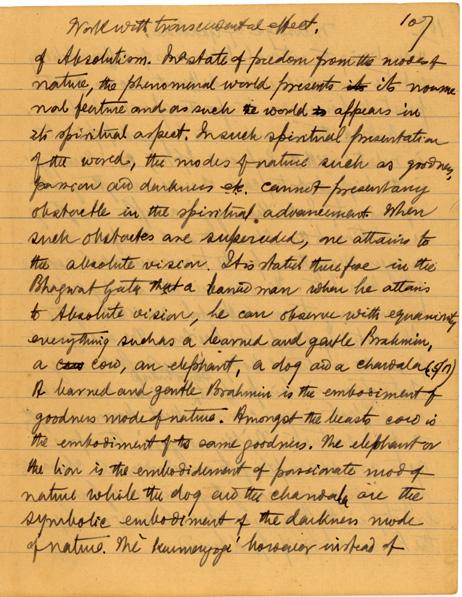 Work with transcendental effect. 107
of Absolutism. In state of freedom from the modes of
nature, the phenomenal world presents its its noume
nal feature and as such the world is appears in
its spiritual aspect. In such spiritual presentation
of the world, the modes of nature such as goodness,
passion and darkness etc. cannot present any
obstactle in the spiritual advancement. When
such obstactes are superceded, one attains to
the absolute vision. It is stated therefore in the
Bhagwat Gita that a learned man when he attains
to Absolute vision, he can observe with equanimity
everything such as a learned and gentle Brahmin,
a cow, an elephant, a dog and a chandala (5/17)
A learned and gentle Brahmin is the embodiment of
goodness mode of nature. Amongst the beasts cow is
the embodiment of the same goodness. The elephant or
the lion is the embodidement of passionate mode of
nature while the dog and the chandala are the
symbolic embodiment of the darkness mode
of nature. The 'karmayogi' however instead of